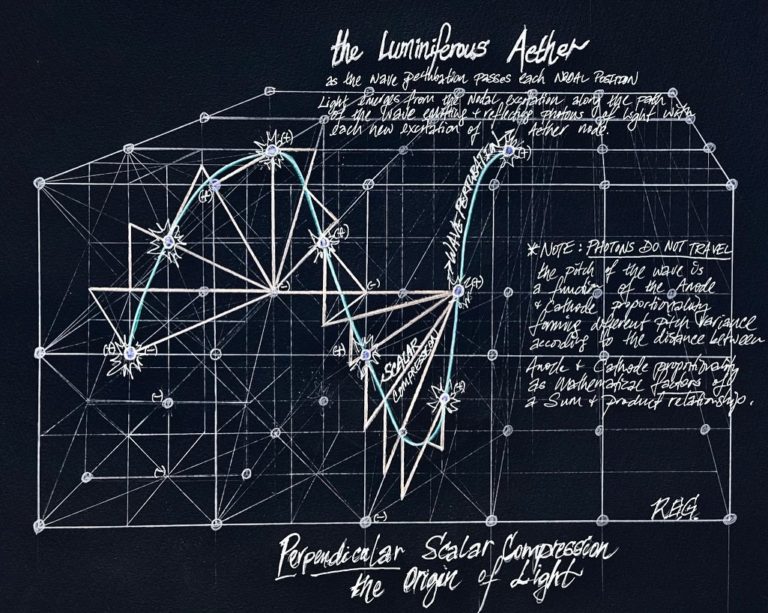 the Luminiferous Aether
as the wave pertubation passes each NODAL POSITION
Light Emerges from the Nodal Excitation along the path
of the Wave emitting + reflecting photons of Light with
each new excitation of Aether node.
WAVE PERTUBATION
* NOTE: PHOTONS DO NOT TRAVEL
the pitch of the wave is
a function of the Anode
& Cathode proportionality
forming different pitch variance
according to the distance between
Anode & Cathode proportionality
as Mathematical factors of
a Sum & product relationship.
SCALAR
COMPRESSION
(+)
(+)
(+)
(+)
(+)
(-)
(-)
(+)
(+) (-)
(+)
(+)
(-)
(-)
(-)
R.E.G.
Perpendicular Scalar Compression
the Origin of Light